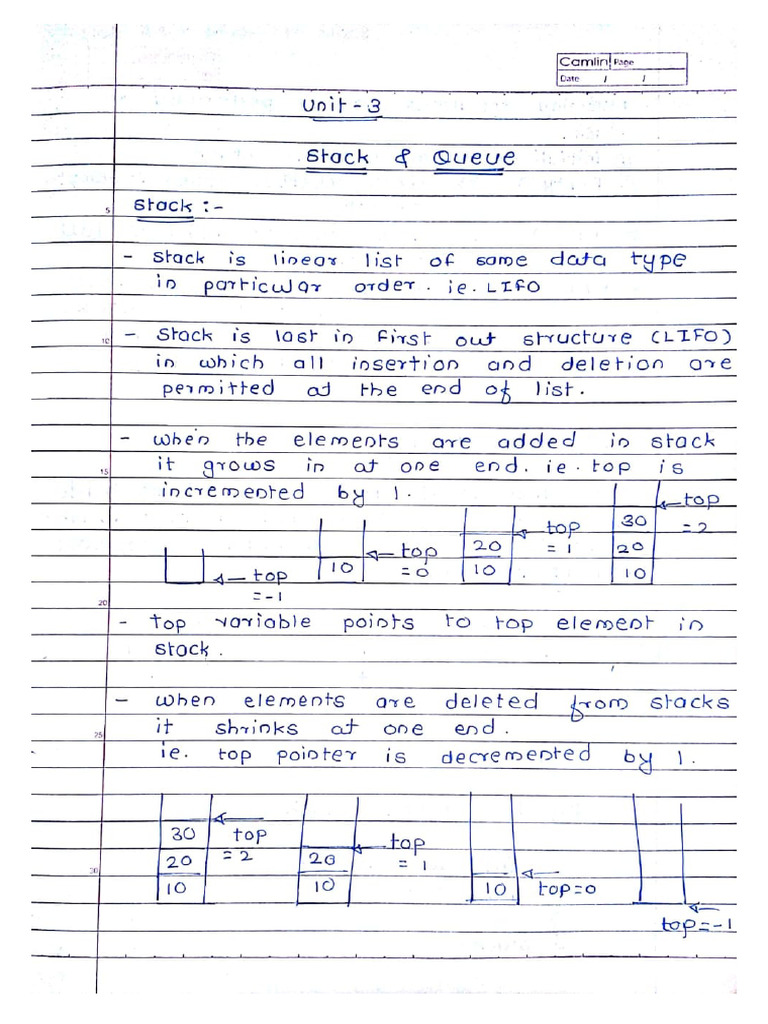 Camlin Page
Date / /
Unit - 3
Stack & Queue
Stack :-
- Stack is linear list of same data type
in particular order. ie. LIFO
- Stack is last in first out structure (LIFO)
in which all insertion and deletion are
permitted at the end of list.
- when the elements are added in stack
it grows in at one end. ie. top is
incremented by 1.
top = -1
10 top = 0
20 10 top = 1
30 20 10 top = 2
- top variable points to top element in
stack.
- when elements are deleted from stacks
it shrinks at one end.
ie. top pointer is decremented by 1.
30 20 10 top = 2
20 10 top = 1
10 top=0
top=-1
5
10
15
20
25